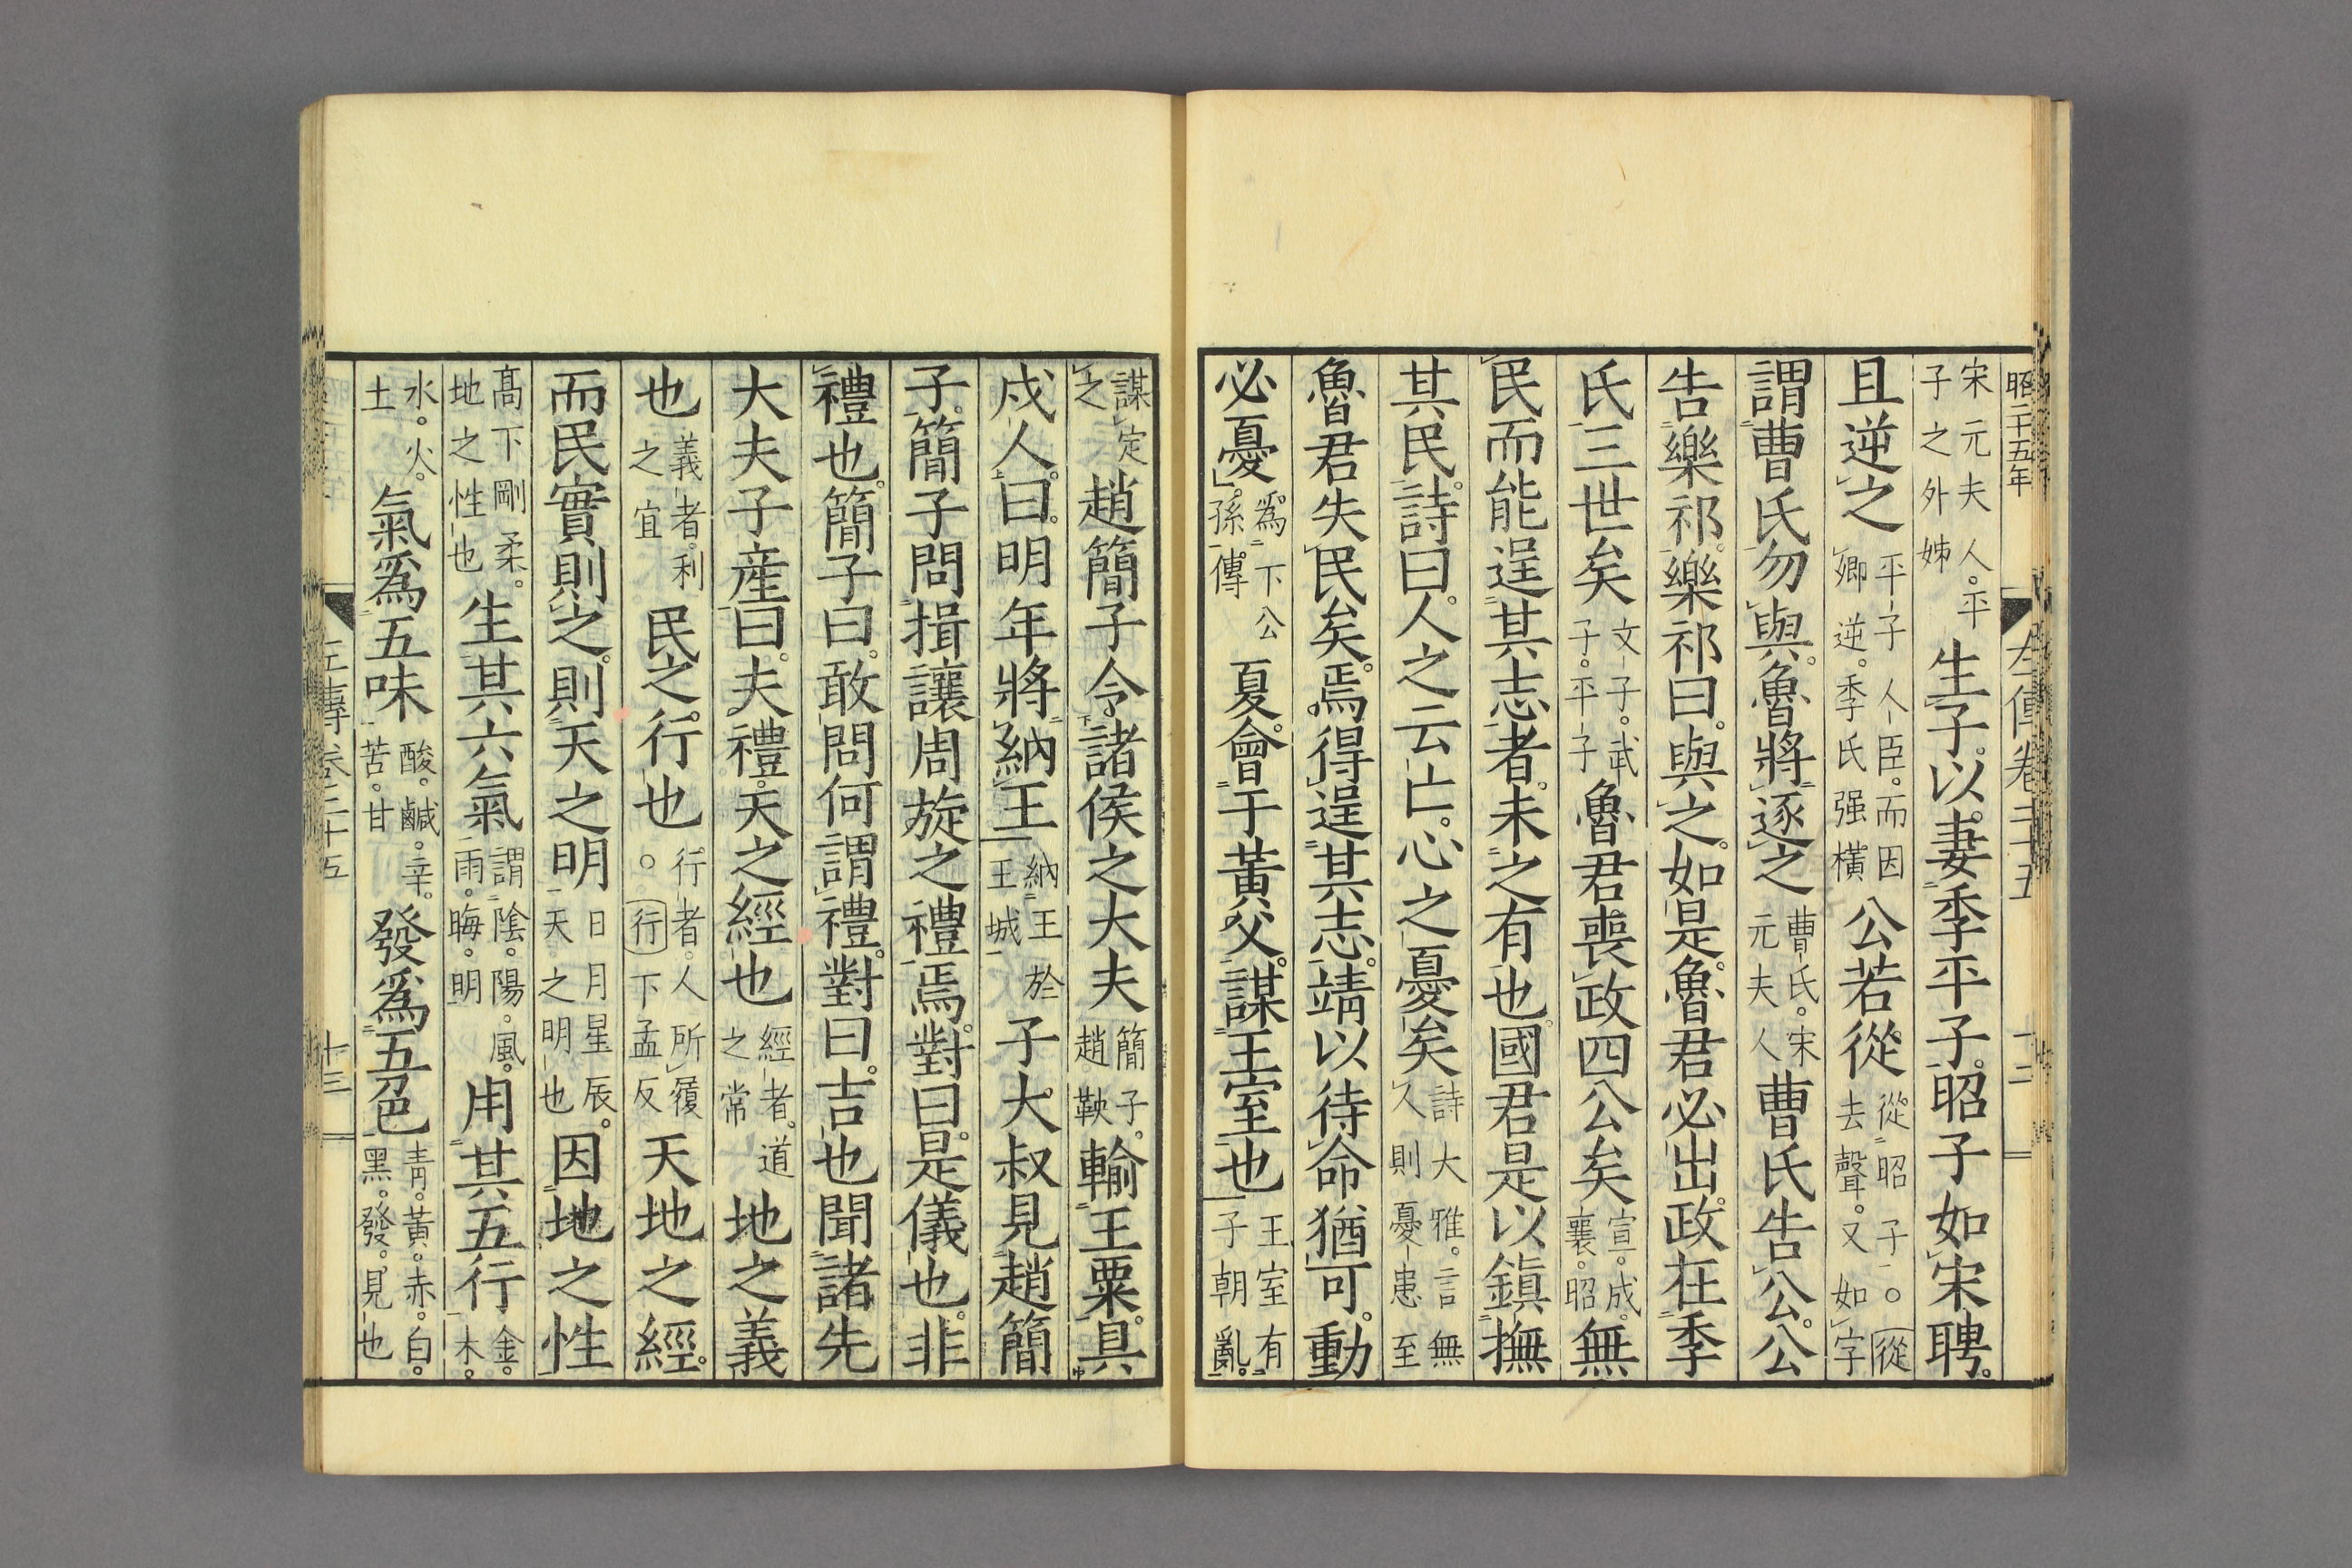 昭二十五年 左傳卷二十五 十二
宋元夫人。平子之外姊生子。以妻季平子。昭子如宋聘。
且逆之平子人臣。而因卿逆。季氏强橫公若從從昭子。○從去聲。又如字
謂曹氏勿與。魯將逐之曹氏。宋元夫人曹氏告公。公
告樂祁。樂祁曰。與之。如是。魯君必出。政在季
氏三世矣文子。武子。平子魯君喪政四公矣宣。成。襄。昭無
民而能逞其志者。未之有也。國君是以鎮撫
其民。詩曰。人之云亡。心之憂矣詩大雅。言無人則憂患至
魯君失民矣。焉得逞其志。靖以待命猶可。動
必憂。爲下公孫傳夏。會于黃父。謀王室也王室有子朝亂。
謀定之趙簡子令諸侯之大夫簡子。趙鞅輸王粟。具
戍人。曰。明年將納王納王於王城子大叔見趙簡
子。簡子問揖讓周旋之禮焉。對曰。是儀也。非
禮也。簡子曰。敢問何謂禮。對曰。吉也聞諸先
大夫子產。曰。夫禮。天之經也經者。道之常地之義
也義者。利之宜民之行也行者。人所履。行下孟反天地之經。
而民實則之。則天之明日月星辰。天之明也因地之性
高下剛柔。地之性也生其六氣謂陰。陽。風。雨。晦。明用其五行金。木。
水。火。土氣爲五味酸。鹹。辛。苦。甘發爲五色青。黃。赤。白。黑。發。見也
左傳卷二十五 十三